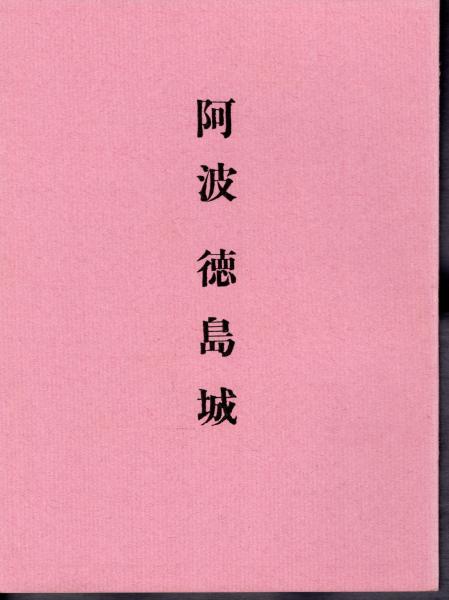 阿波 徳島城